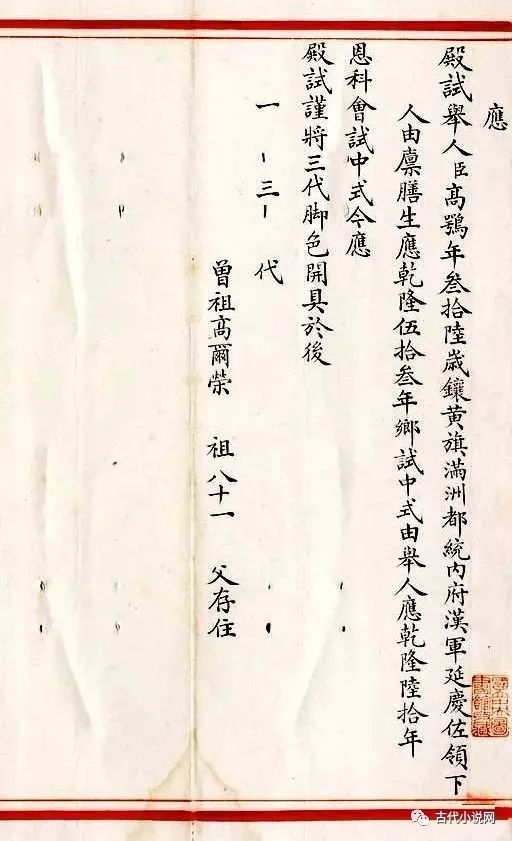 應
殿試舉人臣高鶚年叁拾陸歲鑲黄旗滿洲都統内府漢軍延慶佐領下
人由廪膳生應乾隆伍拾叁年鄉試中式由舉人應乾隆陸拾年
恩科會試中式今應
殿試謹將三代脚色開具於後
一 三代
曾祖高爾榮 祖八十一 父存住
古代小说网